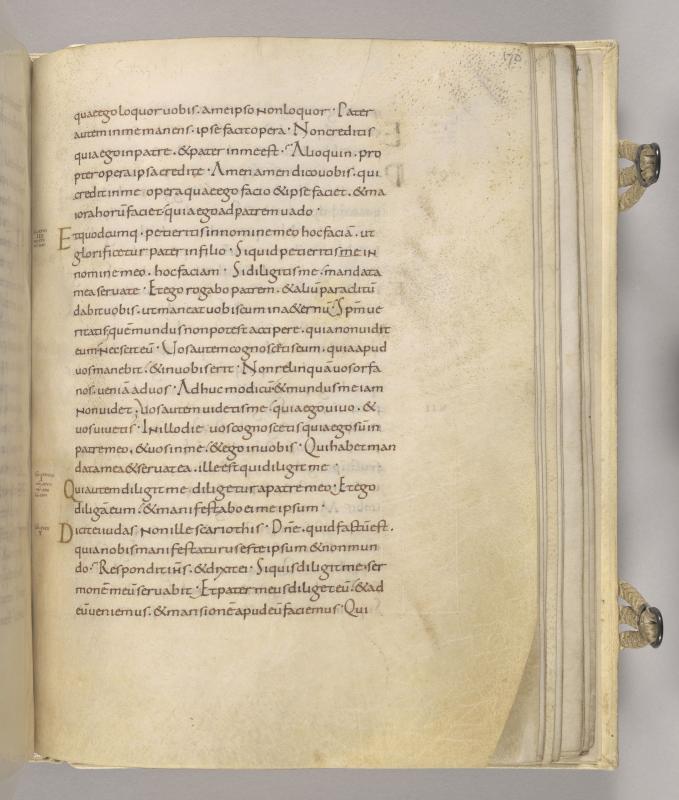 170
quae ego loquor uobis. a me ipso non loquor · Pater
autem in me manens. ipse facit opera · Non creditis
quia ego in patre. & pater in me est · Alioquin. pro
pter opera ipsa credite · Amen amen dico uobis. qui
credit in me opera quae ego facio & ipse faciet. & ma
iora horũ faciet. quia ego ad patrem uado ·
Et quodcumq. petieritis in nomine meo hoc faciã. ut
glorificetur pater in filio · Si quid petieritis me in
nomine meo. hoc faciam · Si diligitis me. mandata
mea seruate · Et ego rogabo patrem. & aliũ paraclitũ
dabit uobis. ut maneat uobiscum in a&ernũ · Sp̃m ue
ritatis. quẽ mundus non potest accipere. quia non uidit
eum nec scit eũ · Vos autem cognoscetis eum. quia apud
uos manebit. & in uobis erit · Non relinquã uos orfa
nos. ueniã ad uos · Adhuc modicũ & mundus me iam
non uidet; Vos autem uidetis me. quia ego uiuo. &
uos uiuetis · In illo die uos cognoscetis quia ego sũ in
patre meo. & uos in me. & ego in uobis · Qui habet man
data mea & seruat ea. ille est qui diligit me ·
Qui autem diligit me diligetur a patre meo · Et ego
diligã eum. & manifestabo ei me ipsum ·
Dicit ei iudas non ille scariothis · Dñe. quid factũ est.
quia nobis manifestaturus es te ipsum & non mun
do · Respondit iħs. & dixit ei · Si quis diligit me. ser
monẽ meũ seruabit · Et pater meus diliget eũ. & ad
eũ ueniemus. & mansionẽ apud eũ faciemus · Qui